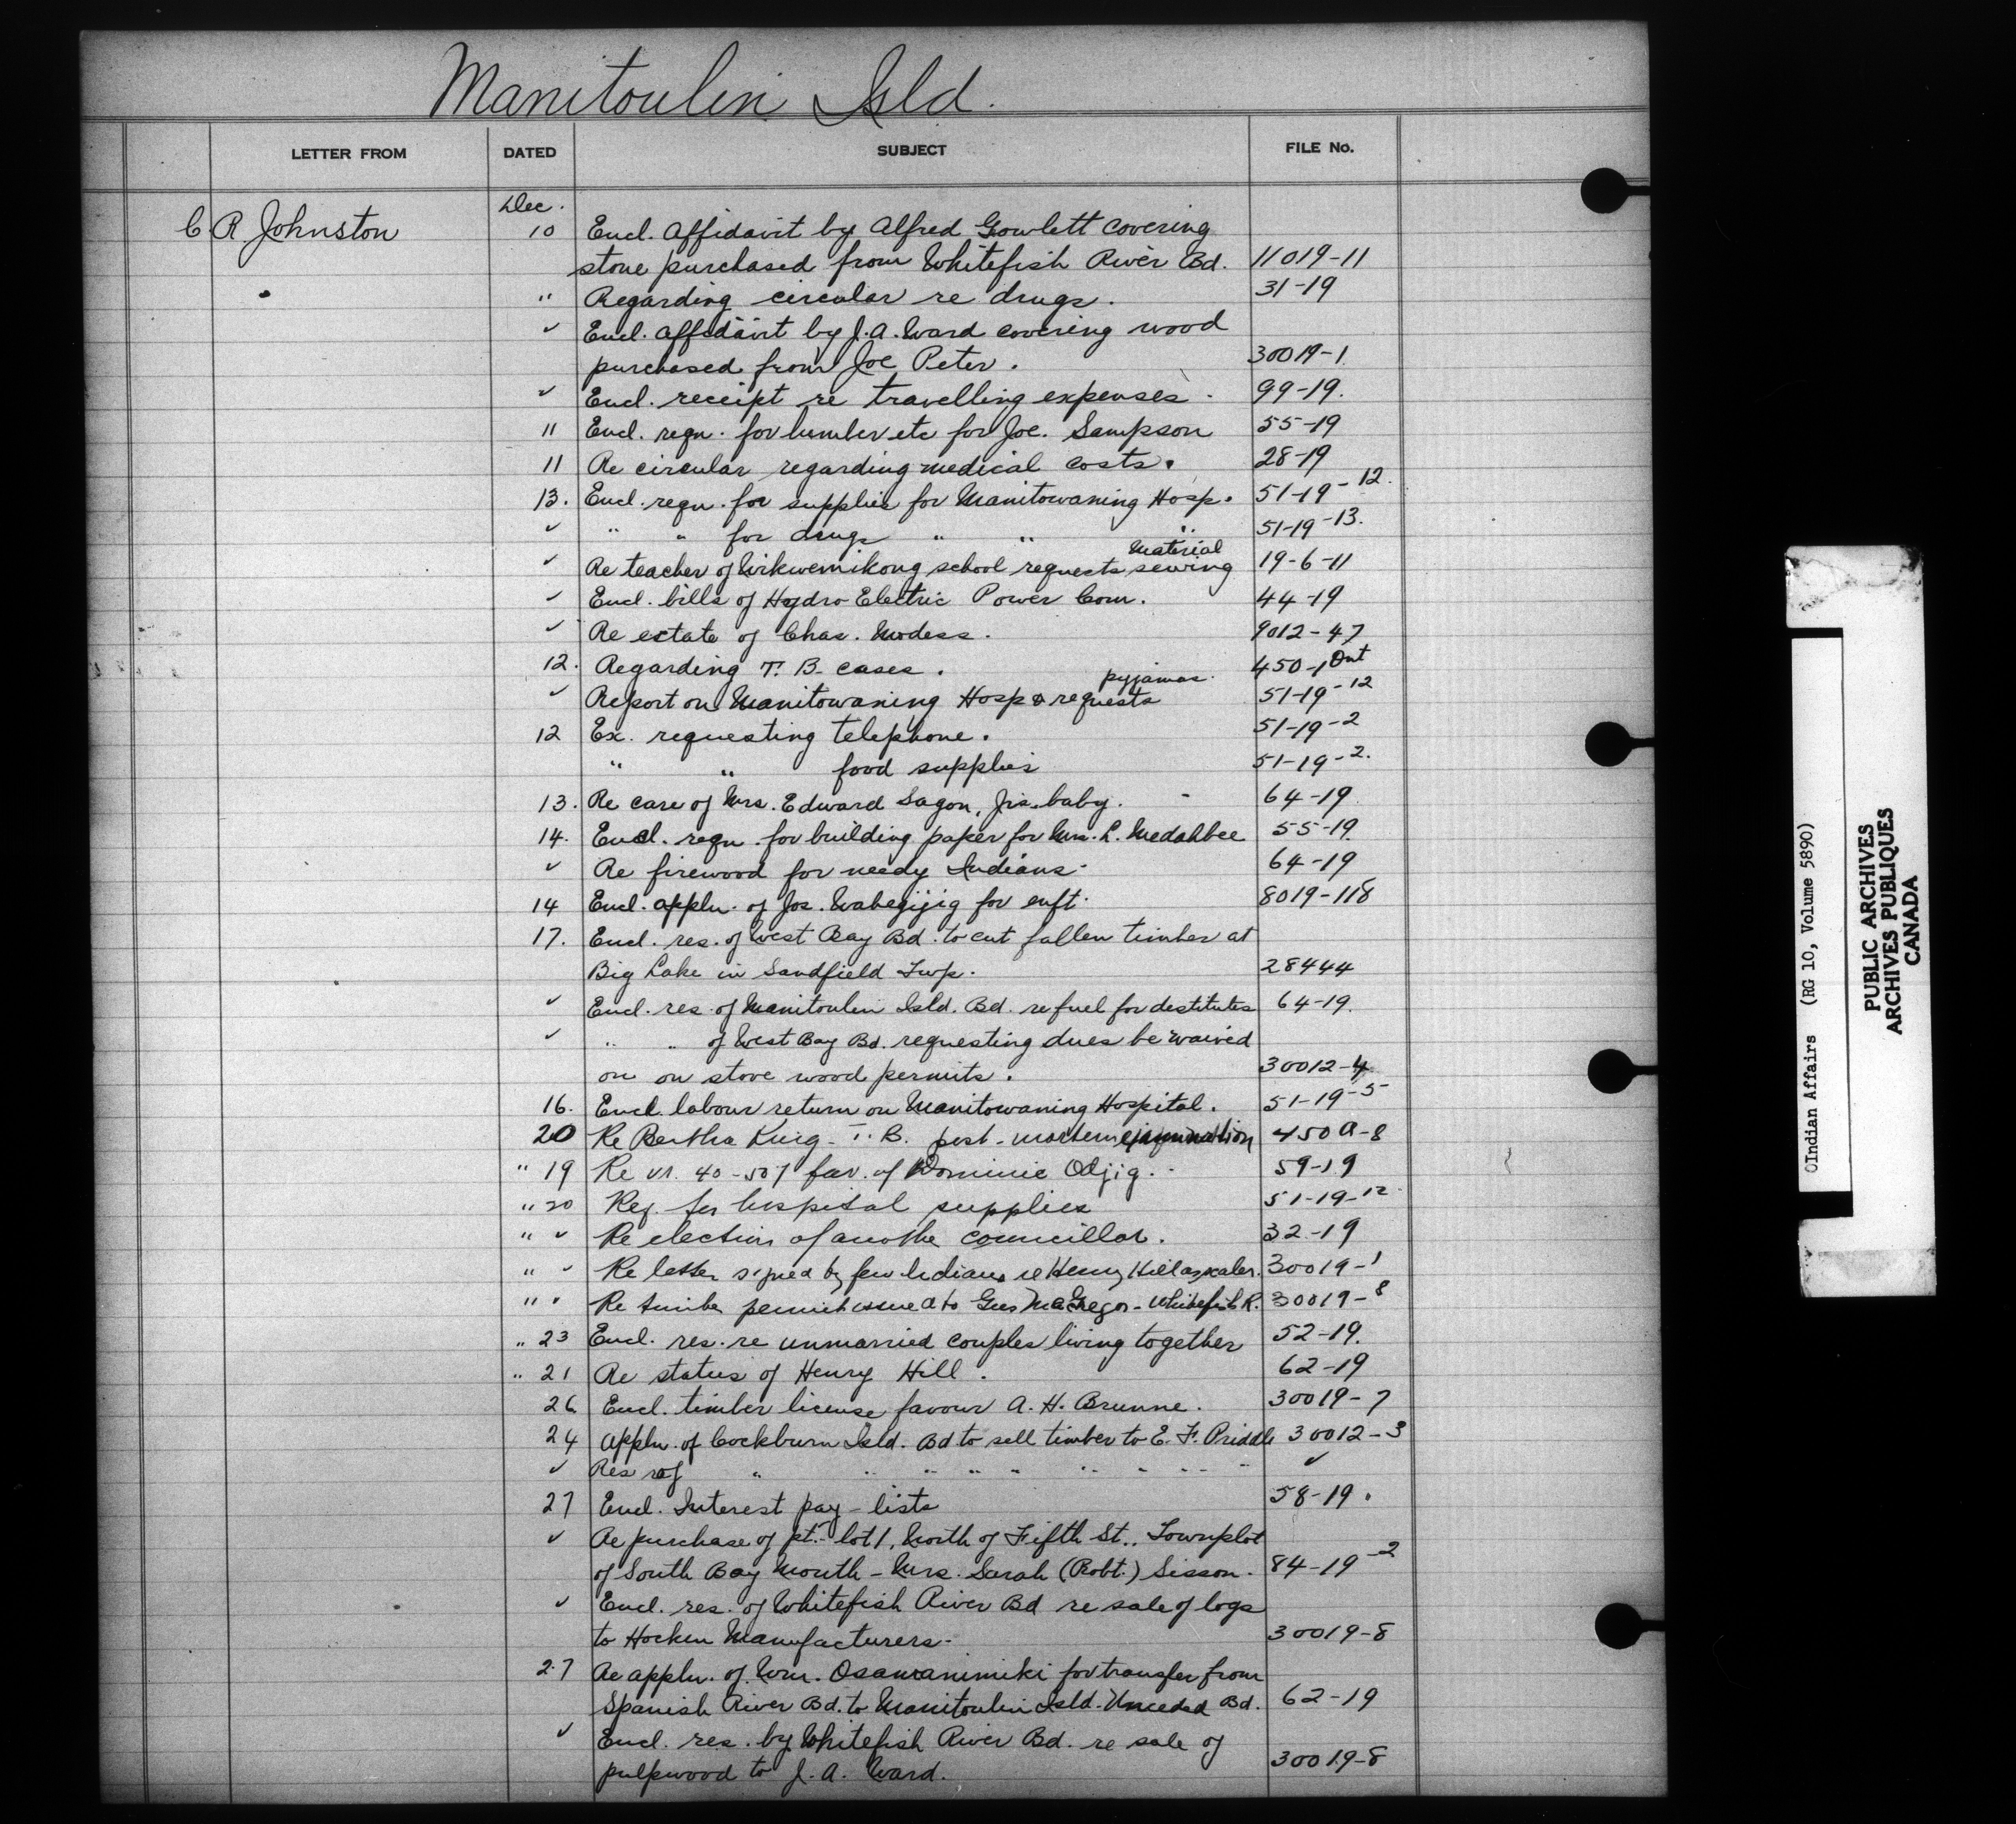 Manitoulin Isld.
LETTER FROM DATED SUBJECT FILE No.
Dec.
C. R Johnston 10 Encl. Affidavit by Alfred Gowlett covering
stone purchased from Whitefish River Bd. 11019-11
" Regarding circular re drugs. 31-19
✓ Encl. affidavit by J. A. Ward covering wood
purchased from Joe Peter. 30019-1
✓ Encl. receipt re travelling expenses. 99-19.
11 Encl. reqn. for lumber etc for Joe. Sampson 55-19
11 Re circular regarding medical costs. 28-19
13. Encl. reqn. for supplies for Manitowaning Hosp. 51-19-12.
✓ " " for drugs " " " 51-19-13.
material
✓ Re teacher of Wikwemikong school requests sewing 19-6-11
✓ Encl. bills of Hydro-Electric Power Com. 44-19
✓ Re estate of Chas. Modess. 9012-47
12. Regarding T. B. cases. 450-1 Ont
pyjamas.
✓ Report on Manitowaning Hosp & requests 51-19-12
12 Ex. requesting telephone. 51-19-2
" " food supplies 51-19-2.
13. Re care of Mrs. Edward Sagon, Jrs. baby. 64-19
14. Encl. reqn. for building paper for Mrs. L. Medahbee 55-19.
✓ Re firewood for needy Indians. 64-19
14 Encl. appln. of Jos. Wabegijig for enft. 8019-118
17. Encl. res. of West Bay Bd. to cut fallen timber at
Big Lake in Sandfield Twp. 28444
✓ Encl. res. of Manitoulin Isld. Bd. re fuel for destitutes 64-19.
✓ " " of West Bay Bd. requesting dues be waived
on on stove wood permits. 30012-4
16. Encl. labour return on Manitowaning Hospital. 51-19-5
20 Re Bertha King - T. B. post-mortem examination 450A-8
" 19 Re vr. 40-507 fav. of Dominic Odjig. 59-19
" 20 Req. for hospital supplies 51-19-12
" ✓ Re election of anothe councillor. 32-19
" ✓ Re letter signed by few Indians re Henry Hill as scaler. 30019-1
" " Re timber permit issued to Gus McGregor - Whitefish R. 30019-8
" 23 Encl. res. re unmarried couples living together 52-19.
" 21 Re status of Henry Hill. 62-19
26 Encl. timber license favour A. H. Brunne. 30019-7
24 Appln. of Cockburn Isld. Bd to sell timber to E. F. Priddle 30012-3
✓ Res of " " " " " " " " " ✓
27 Encl. Interest pay-lists 58-19.
✓ Re purchase of pt. lot 1, North of Fifth St., Townplot
of South Bay Mouth - Mrs. Sarah (Robt.) Sisson. 84-19-2
✓ Encl. res. of Whitefish River Bd re sale of logs
to Hocken Manufacturers. 30019-8
27 Re appln. of Wm. Osawanimiki for transfer from
Spanish River Bd. to Manitoulin Isld. Unceded Bd. 62-19
✓ Encl. res. by Whitefish River Bd. re sale of
pulpwood to J. A. Ward. 30019-8
©Indian Affairs (RG 10, Volume 5890)
PUBLIC ARCHIVES
ARCHIVES PUBLIQUES
CANADA